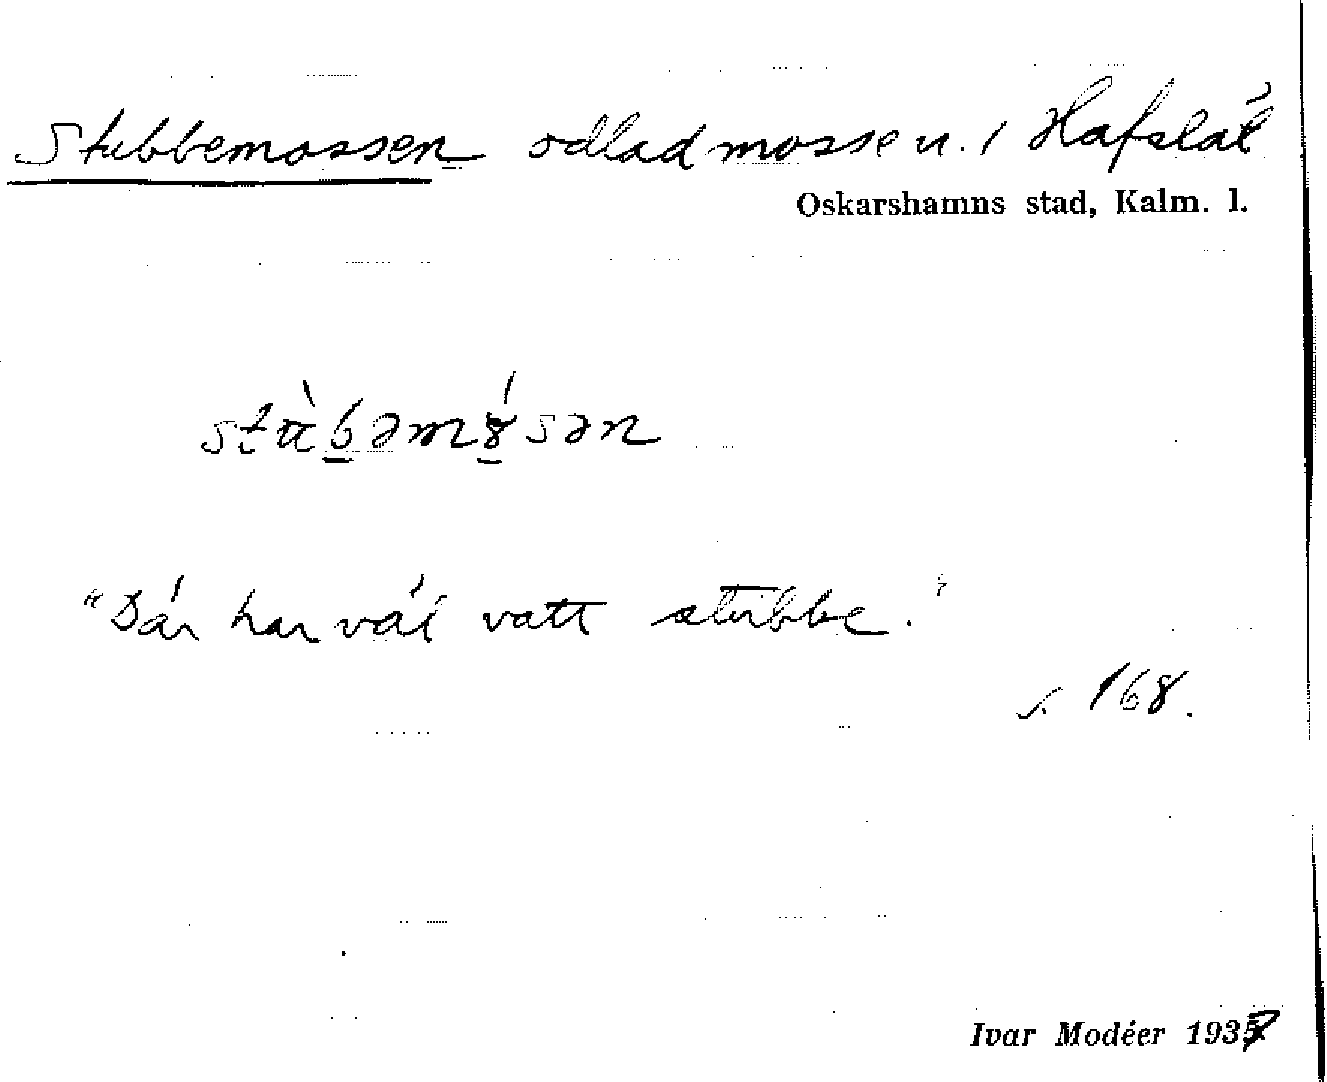 Stubbemossen odlad mosse u. / Hafslät
Oskarshamns stad, Kalm. l.
"Där har väl vatt stubbe."
s. 168.
Ivar Modéer 1937